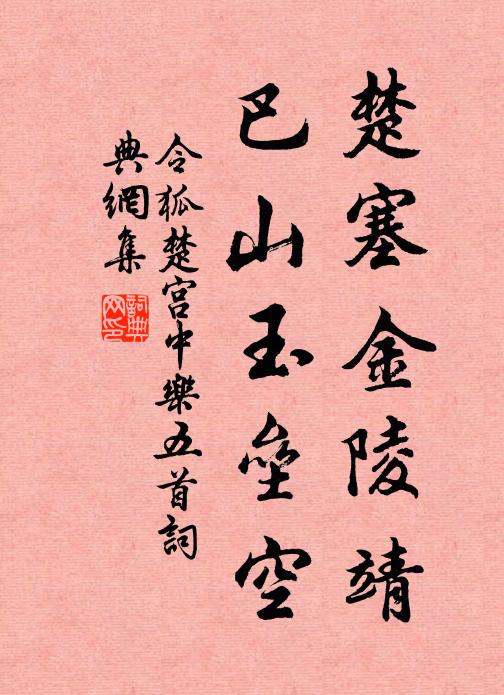 楚塞金陵靖
巴山玉壘空
令狐楚宮中樂五首詞
典網集
詞典網印